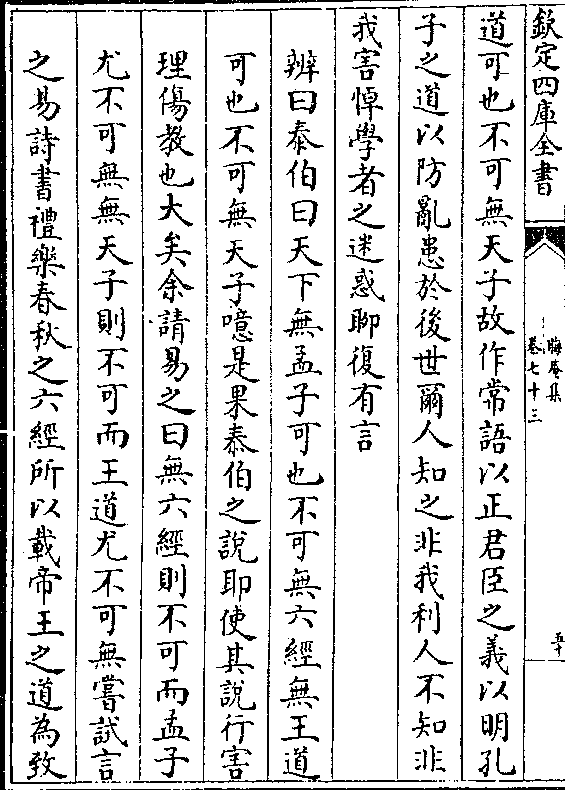 欽定四庫全書
晦庵集
卷七十三
五十
道可也不可無天子故作常語以正君臣之義以明孔
子之道以防亂患於後世爾人知之非我利人不知非
我害悼學者之迷惑聊復有言
辨曰泰伯曰天下無孟子可也不可無六經無王道
可也不可無天子噫是果泰伯之說耶使其說行害
理傷教也大矣余請易之曰無六經則不可而孟子
尤不可無無天子則不可而王道尤不可無嘗試言
之易詩書禮樂春秋之六經所以載帝王之道為致